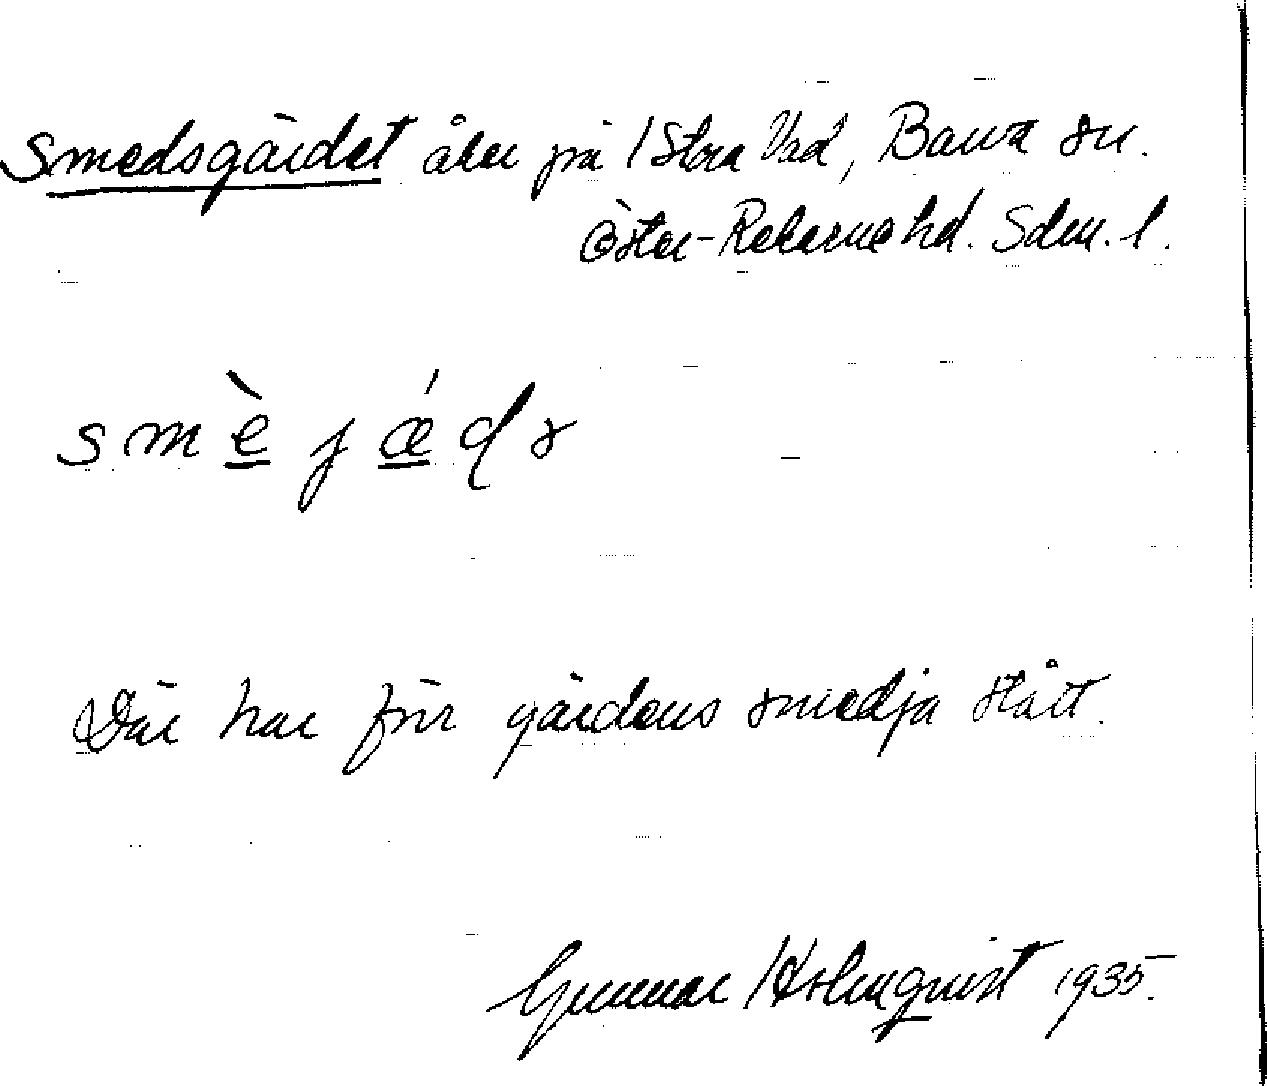 Smedsgärdet åker på Stora Vad, Barva sn.
Öster-Rekarne hd. Sdm. l.
smè̲jǽ̲dɤ
Där har förr gårdens smedja stått.
Gunnar Holmquist 1935.